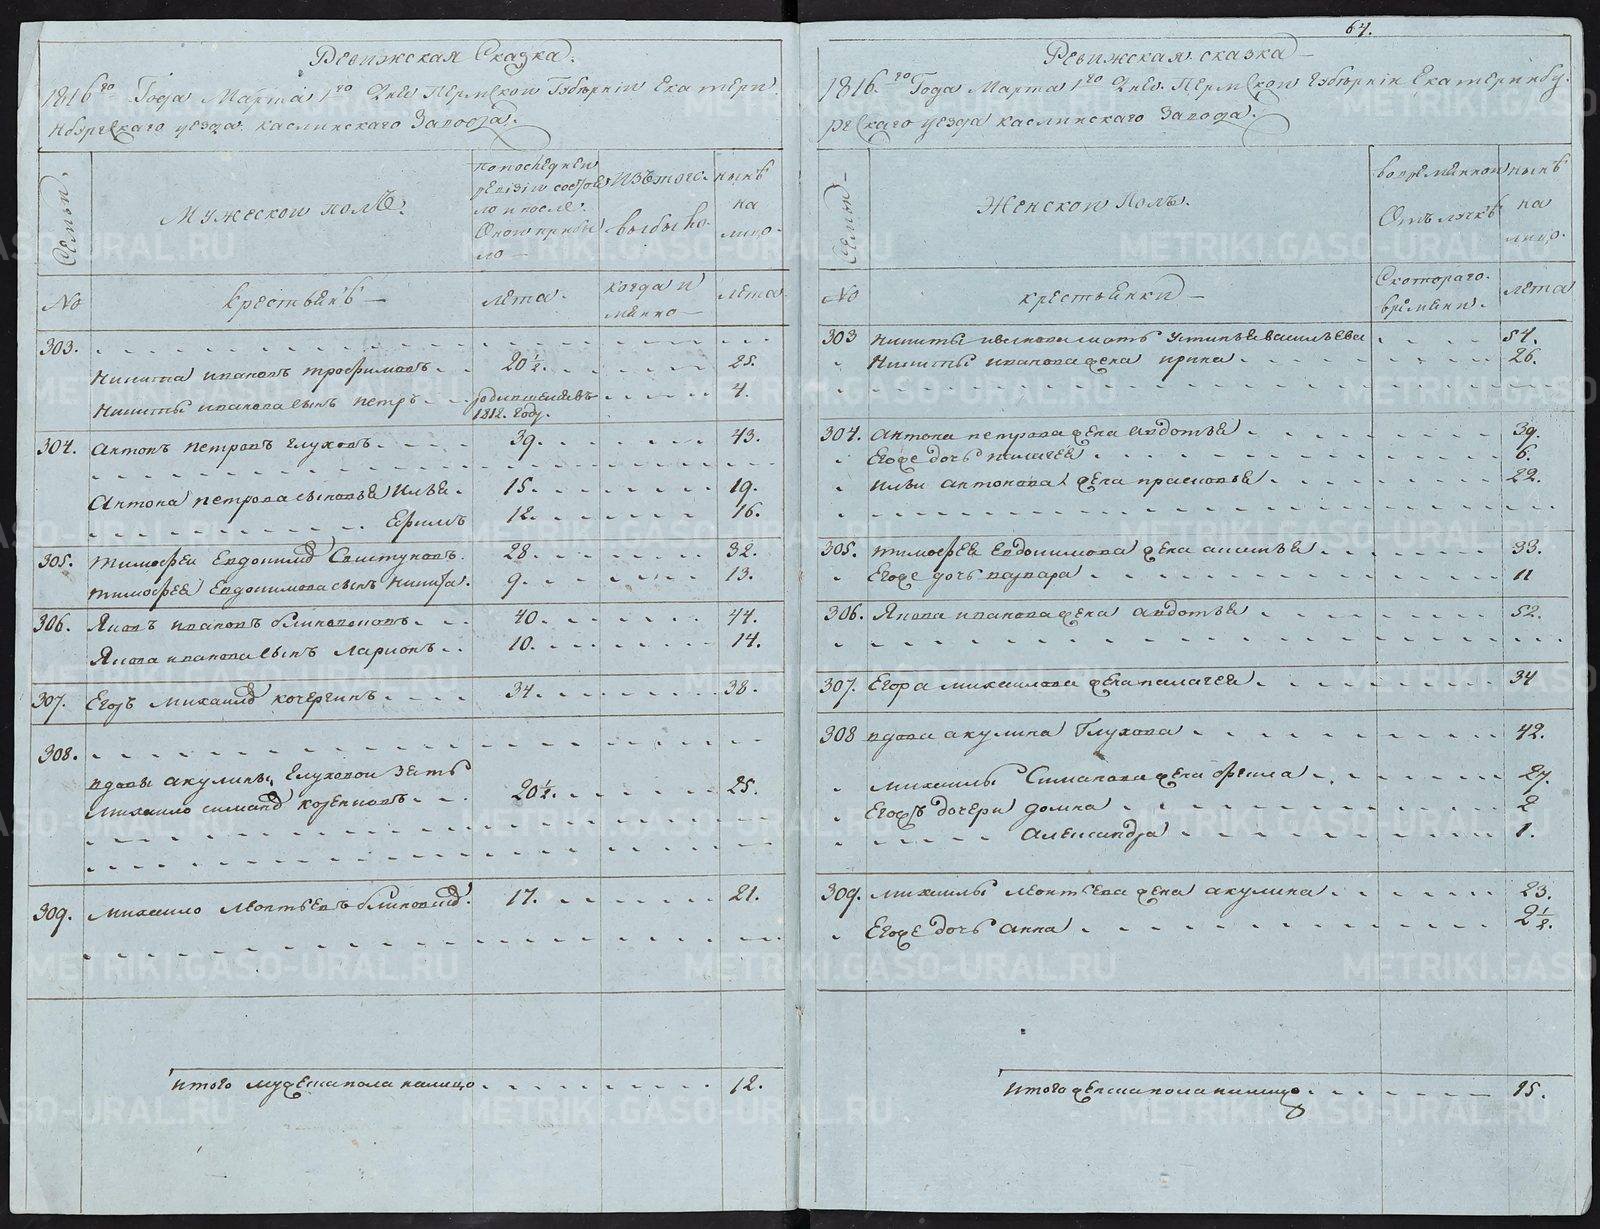 Ревижская Сказка.
1816го Года Марта 1го Дне Пермской Губернии Екатери
нбургскаго уезда каслинскаго Завода.
Семьи.
Мужеской полъ.
По последней
ревизии состоя
ло и после
Оной прибы
ло
Изъ того
выбыло
ныне
на
лицо.
No
крестьянъ
лета.
когда и
менно
лета
303.
Никита ивановъ трофимовъ 20 1/2. 25.
Никиты иванова сынъ петръ родившейся въ 1812. году. 4.
304. Антонъ петровъ глуховъ 39. 43.
Антона петрова сыновья Илья 15. 19.
Ефимъ 12. 16.
305. тимофей Евдокимов Свистуновъ 28. 32.
тимофея Евдокимова сынъ Никита 9. 13.
306. Яковъ ивановъ блиновсковъ 40. 44.
Якова иванова сынъ Ларионъ 10. 14.
307. Егоръ михаилов кочергинъ 34. 38.
308.
вдовы акулины глуховой зять
михаило симанов 20 1/2. 25.
309. михаило леонтьевъ 17. 21.
итого мужеска пола налицо 12.
64.
Ревижская сказка
1816го Года Марта 1го Дне Пермской Губернии Екатеринбу
ргскаго уезда каслинскаго Завода.
Семьи
Женской Полъ.
во временной
Отлучке
ныне
на
лицо.
No
крестьянки
С котораго
времени.
лета
303 Никиты иванова мать Устинья васильева 54.
Никиты иванова жена ирина 26.
304. антона петрова жена авдотья 39.
Егоже дочь пелагея 6.
ильи антонова жена прасковья 22.
305. тимофея Евдокимова жена 33.
Егоже дочь варвара 11
306. Якова иванова жена авдотья 52.
307. Егора михаилова жена пелагея 34
308 вдова акулина Глухова 42.
михаилы Симанова жена фекла 27.
Егожъ дочери домна 2
Александра 1.
309. михаилы леонтьева жена акулина 23.
Егоже дочь анна 2 1/2.
итого женска пола налицо 15.
METRIKI.GASO-URAL.RU